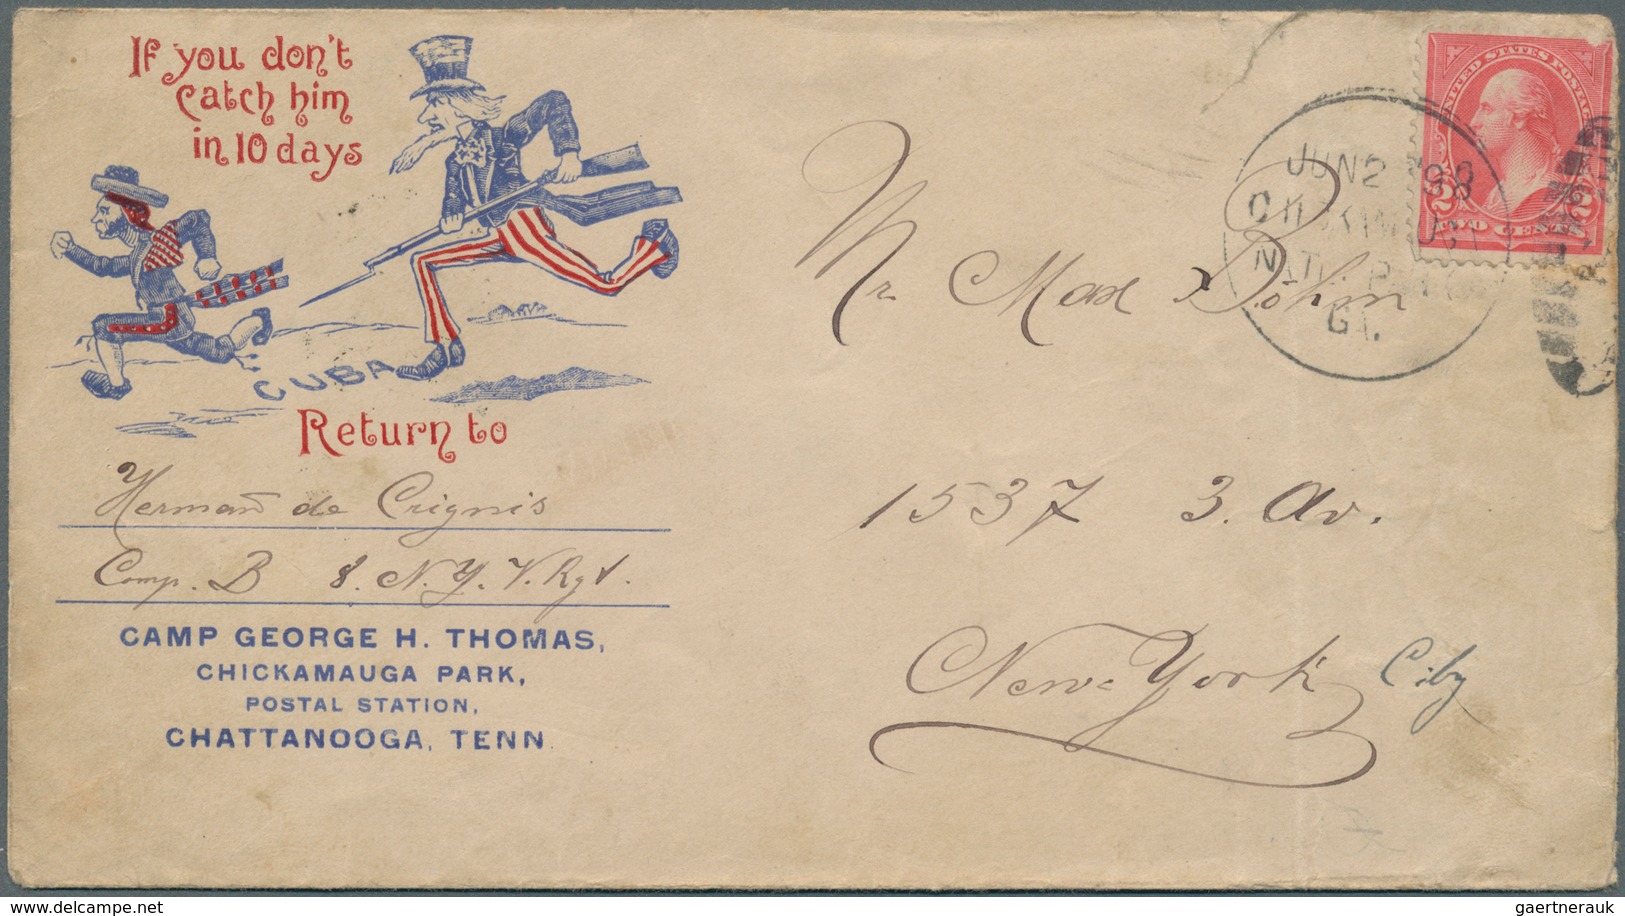 If you don't
catch him
in 10 days
CUBA
Return to
Herman̄ de Crignis
Comp. B 8. N. Y. V. Rgt.
CAMP GEORGE H. THOMAS,
CHICKAMAUGA PARK,
POSTAL STATION,
CHATTANOOGA, TENN.
UNITED STATES POSTAGE
2
TWO CENTS
JUN 2 98
NAT'L P
GA.
Mr Max Böhm
1537 3. Av.
New-York City
gaertnerauk